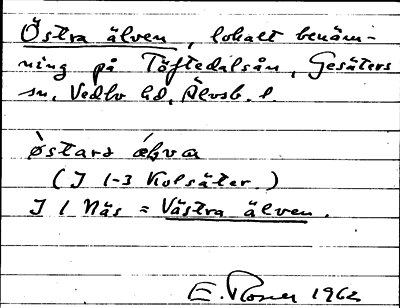 Östra älven, lokalt benäm-
ning på Töftedalsån, Gesäters
sn, Vedbo hd, Älvsb. l.
østarə
(I 1-3 Kolsäter.)
I 1 Näs = Västra älven.
E. 1962